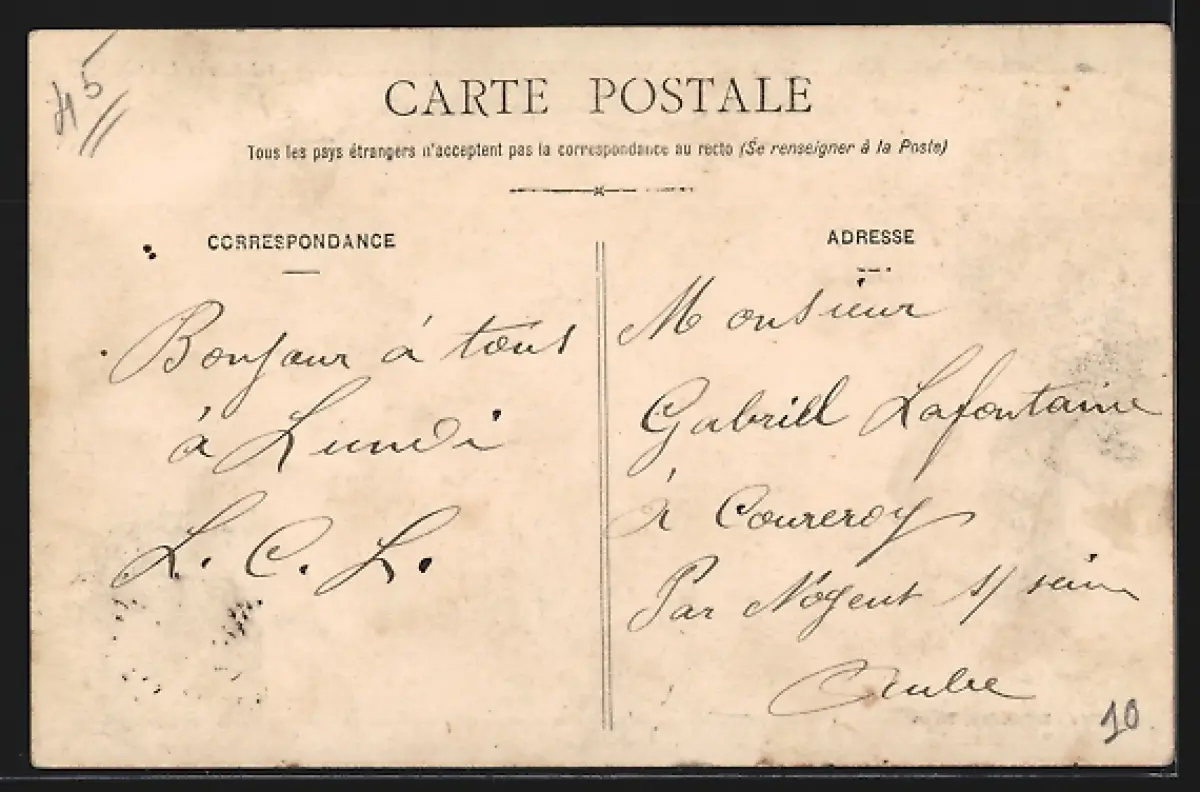 45
CARTE POSTALE
Tous les pays étrangers n'acceptent pas la correspondance au recto (Se renseigner à la Poste)
CORRESPONDANCE
Bonjour à tous
à Lundi
L. C. L.
ADRESSE
Monsieur
Gabriell Lafontaine
à Courceroy
Par Nogent s/ seine
Aube
10